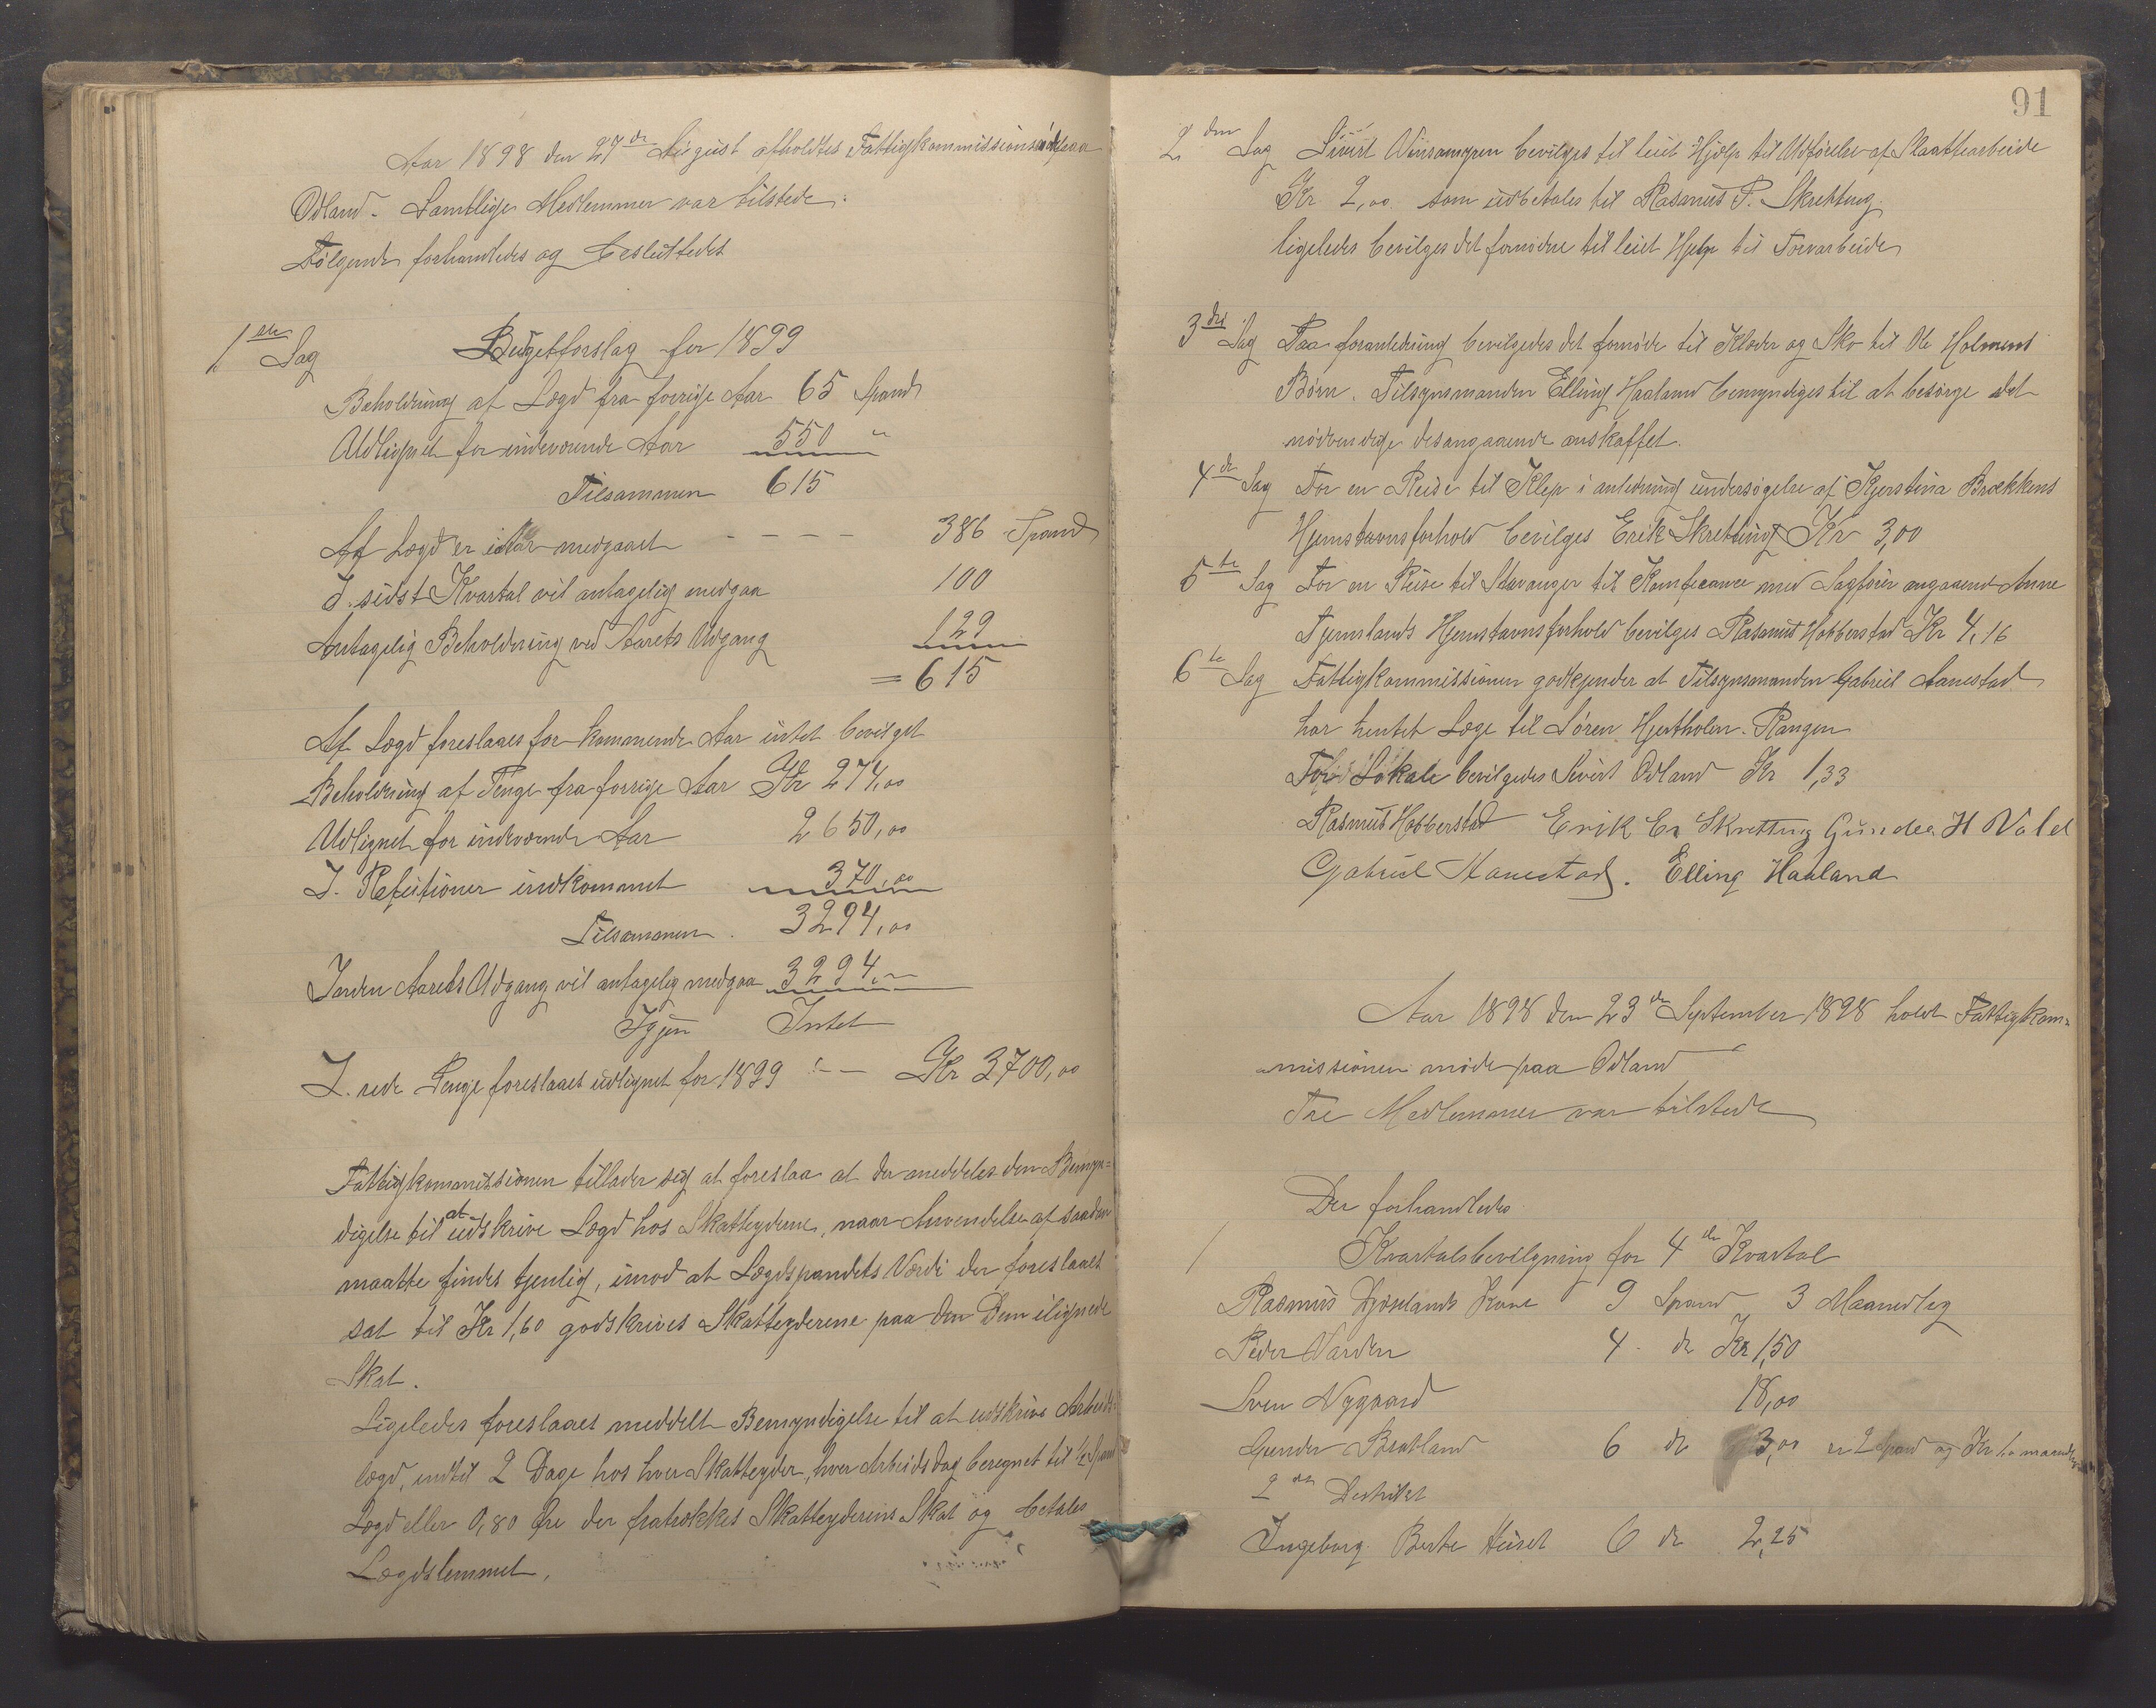 Aar 1898 den 27de August afholdtes Fattigkommissionsmøde paa
Odland. Samtlige Medlemmer var tilstede.
Følgende forhandledes og besluttedes
1ste Sag Budgetforslag for 1899
Beholdning af Lægd fra forrige Aar 65 Spand
Udlignet for indeværende Aar 550 "
Tilsammen 615
Af Lægd er i Aar medgaaet - - - - 386 Spand
I sidst Kvartal vil antagelig medgaa 100
Antagelig Beholdning ved Aarets Udgang 129
= 615
Af Lægd foreslaaes for kommende Aar intet bevilget
Beholdning af Penge fra forrige Aar Kr 274,00
Udlignet for indeværende Aar 2650,00
I. Refusioner indkommet 370,00
Tilsammen. 3294,00
Inden Aarets Udgang vil antagelig medgaa 3294,-
Igjen Intet
I. rede Penge foreslaaes udlignet for 1899 - - Kr 3700,00
Fattigkommissionen tillader sig at foreslaa at der meddeles den Bemyn=
digelse til at udskrive Lægd hos Skatteyderne, naar Anvendelse af saadan
maatte findes tjenlig, imod at Lægdspandets Værdi der foreslaaes
sat til Kr 1,60 godskrives Skatteyderene paa den Dem ilignede
Skat.
Ligeledes foreslaaes meddelt Bemyndigelse til at udskrive Arbeids=
lægd, indtil 2 Dage hos hver Skatteyder, hver Arbeidsdag beregnet til 1/2 Spand
Lægd eller 0,80 Øre der fratrækkes Skatteyderens Skat og betales
Lægdslemmet.
91
2den Sag Sivert bevilges til leiet Hjælp til Udførelse af Slaattearbeide
Kr 2,00 som udbetales til Rasmus P. Skretting.
ligeledes bevilges det fornødne til leiet Hjelp til Torvarbeide
3die Sag Paa foranledning bevilgedes det fornøde til Klæder og Sko til Ole Holmens
Børn. Tilsynsmanden Elling Haaland bemyndiges til at besørge det
nødvendige desangaaende anskaffet.
4de Sag For en Reise til Klep i anledning undersøgelse af Kjerstina Brækkens
Hjemstavnsforhold bevilges Erik Skretting Kr 3,00
5te Sag For en Reise til Stavanger til Konferance med Sagfører angaaende Anne
Tjemslands Hjemstavnsforhold bevilges Rasmus Hobberstad Kr 4,16
6te Sag Fattigkommissionen godkjender at Tilsynsmanden Gabriel Aanestad
har hentet Læge til Søren Hjertholen. Rangen
For Lokale bevilgedes Sivert Odland Kr 1,33
Rasmus Hobberstad Erik Er Skretting Gunder H Vold
Gabriel Aanestad. Elling Haaland
Aar 1898 den 23de September 1898 holdt Fattigkom=
missionen møde paa Odland
Tre Medlemmer var tilstede
Der forhandledes
1 Kvartalsbevilgning for 4de Kvartal
Rasmus Kone 9 Spand 3 Maanedlig
Peder Varden 4 do Kr 1,50
Sven Nygaard 18,00
Gunder Bratland 6 do 3,00 er 2 Spand og Kr 1,- maanedlig
2det Destrikt
Ingeborg Berte Huset 6 do 2,25